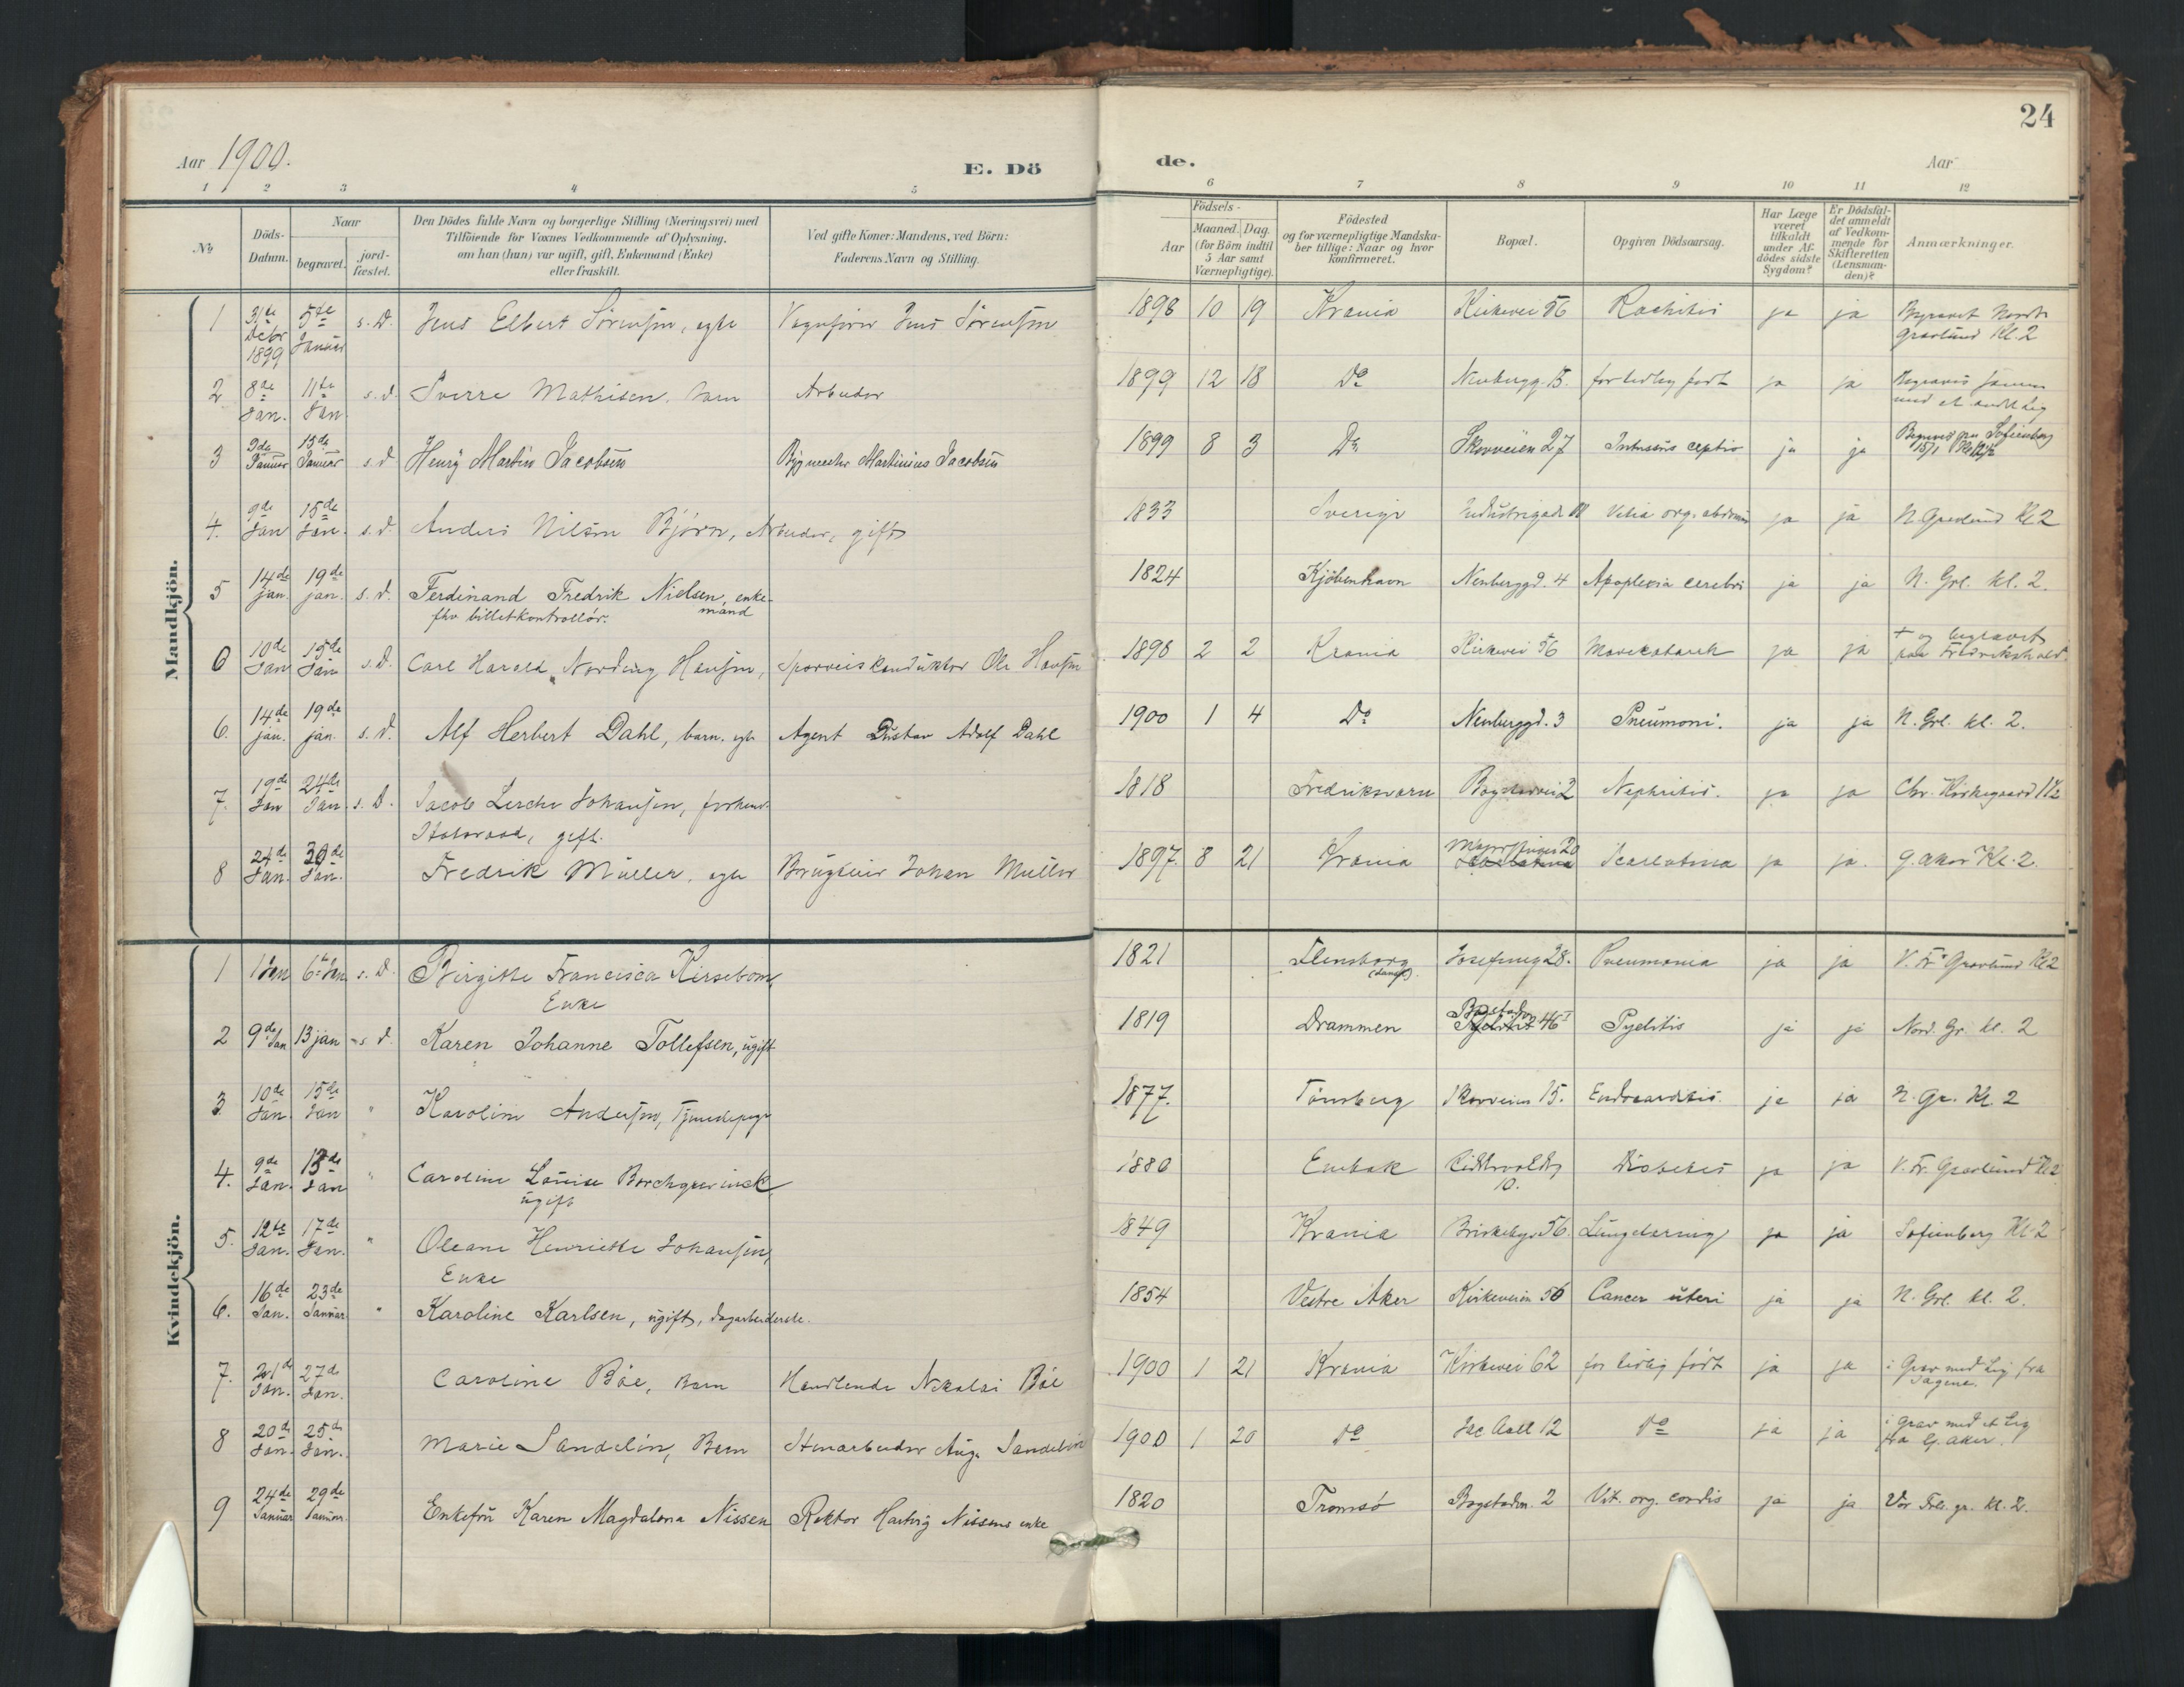 24
Aar 1900.
E. Dö
de.
Aar
1 2 3 4 5 6 7 8 9 10 11 12
№
Döds-
Datum.
Naar
begravet.
jord-
fæstet.
Den Dödes fulde Navn og borgerlige Stilling (Næringsvei) med
Tilföiende for Voxnes Vedkommende af Oplysning,
om han (hun) var ugift, gift, Enkemand (Enke)
eller fraskilt.
Ved gifte Koner: Mandens, ved Börn:
Faderens Navn og Stilling.
Aar
Födsels-
Maaned. Dag.
(for Börn indtil
5 Aar samt
Værnepligtige).
Födested
og for værnepligtige Mandska-
ber tillige: Naar og hvor
konfirmeret.
Bopæl.
Opgiven Dödsaarsag.
Har Læge
været
tilkaldt
under Af-
dödes sidste
Sygdom?
Er Dödsfal-
det anmeldt
af Vedkom-
mende for
Skifteretten
(Lensman-
den)?
Anmærkninger.
Mandkjön.
1 31te Dcbr 1899 5te Januar s. D. Jens Elbert Sörensen, egte Vognfører Jens Sörensen 1898 10 19 Krania Kirkevei 56 Rachitis ja ja Begravet Nordr Gravlund Kl. 2
2 8de Jan. 11te Jan. s. d. Sverre Mathisen, barn Arbeider 1899 12 18 Do Neubergg. 15. for tidlig født ja ja Begraves sammen med et andet Lig
3 9de Januar 15de Januar s. d Henry Martin Jacobsen Bygmester Martinius Jacobsen 1899 8 3 Do Skovveien 27 Intussus ceptio ja ja Begraves paa Sofienberg 15/1
4. 9de Jan 15de Jan. s. d. Anders Nilsen Björn, Arbeider, gift 1833 Sverige Industrigade Vitia org. abdomin ja ja N. Gravlund Kl 2
5 14de jan. 19de jan. s. d. Ferdinand Fredrik Nielsen, enke-
mand
fhv billetkontrollör. 1824 Kjöbenhavn Neuberggd. 4 Apoplexia cerebri ja ja N. Grl. kl. 2.
6 10de Jan 15de Jan s. d. Carl Harald Nording Hansen, Sporveiskonduktør Ole Hansen 1898 2 2 Krania Kirkevei 56 Mavekatarrh ja ja + og begravet paa Fredrikshald
6. 14de jan. 19de jan. s. d. Alf Herbert Dahl, barn. egte Agent Gustav Adolf Dahl 1900 1 4 Do Neuberggd. 3 Pneumoni. ja ja N. Grl. kl. 2.
7. 19de Jan 24de Jan s. D. Jacob Lerche Johansen, forhenv.
Statsraad, gift. 1818 Fredriksværn Bogstadvei 2 Nephritis. ja ja Chr. Kirkegaard
8 24de Jan. 30de Jan. Fredrik Müller, egte Brugseier Johan Müller 1897. 8 21 Krania Majorstuvei 20 Scarlatina ja ja. G. Aker Kl. 2.
Kvindekjön.
1 1 Jan 6te Jan s. D. Birgitte Francisca Kirsebom,
Enke 1821 Flensborg
(dansk). Josefinesg 28. Pneumonia ja ja V. Fr. Gravlund Kl 2
2 9de Jan 13 jan s. d. Karen Johanne Tollefsen, ugift 1819 Drammen Bogstadv 46 I Pyelitis ja ja Nord. Gr. kl. 2
3 10de Jan. 15de Jan " Karoline Andersen, Tjenestepige 1877. Tönsberg Skovveien 15. Endocarditis. ja ja N. Gr. Kl. 2
4. 9de Jan. 13de Jan " Caroline Louise Borchgrevinck
ugift 1880 Enebak Eidsvoldsg 10. Diabetes ja ja V. Fr. Gravlund Kl 2
5. 12te Jan. 17de Jan. " Oleane Henriette Johansen,
Enke 1849 Krania Briskebyv. 56. Lungetæring ja ja Sofienberg Kl 2
6. 16de Jan. 23de Januar " Karoline Karlsen, ugift, dagarbeiderske. 1854 Vestre Aker Kirkeveien 56 Cancer uteri ja ja N. Grl. kl. 2.
7. 21de Jan. 27de Jan. Caroline Böe, Barn Handlende Nikolai Böe 1900 1 21 Krania Kirkevei 62 for tidlig födt ja ja i Grav med Lig fra Sagene.
8 20de Jan. 25de Jan. Marie Sandelin, Barn Stenarbeider Aug. Sandelin 1900 1 20 Do Jac Aall 12 Do ja ja i Grav med et Lig fra G. Aker.
9 24de Januar 29de Januar. Enkefru Karen Magdalena Nissen Rektor Hartvig Nissens enke 1820 Tromsö Bogstadv. 2 Vit. org. cordis ja ja Vor Frls. gr. Kl. 2.